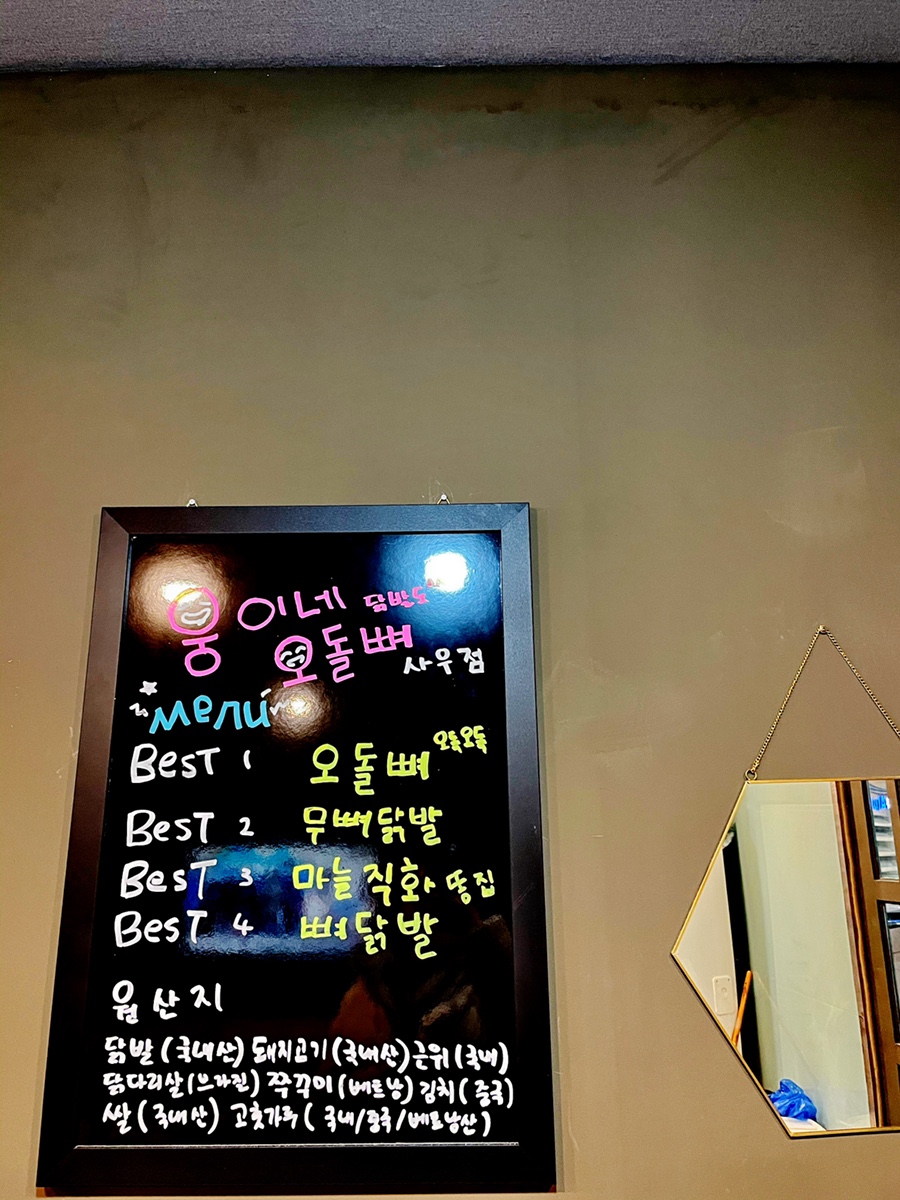 웅이네 닭발도
오돌뼈 사우점
Menu
BesT 1 오돌뼈 오돌오돌
BesT 2 무뼈닭발
BesT 3 마늘 직화 똥집
BesT 4 뼈닭발
원산지
닭발(국내산) 돼지고기(국내산) 근위(국내)
닭다리살(브라질) 쭈꾸미(베트남) 김치(중국)
쌀(국내산) 고춧가루(국내/중국/베트남산)